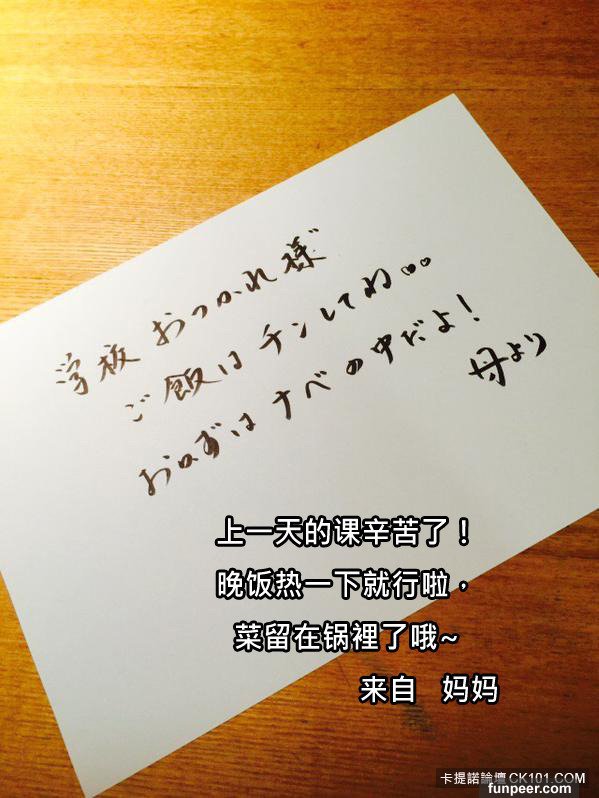 学校 おつかれ様
ご飯は チンしてね。。
おかずは ナベの中だよ！
母より
上一天的课辛苦了！
晚饭热一下就行啦，
菜留在锅裡了哦~
来自 妈妈
卡提諾論壇 CK101.COM
funpeer.com